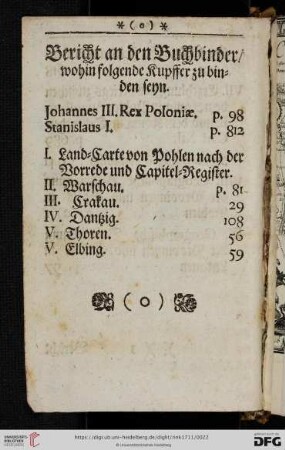 * (o) *
Bericht an den Buchbinder/
wohin folgende Kupffer zu bin-
den seyn.
Johannes III. Rex Poloniæ. p. 98
Stanislaus I. p. 812
I. Land-Carte von Pohlen nach der
Vorrede und Capitel-Register.
II. Warschau. p. 81
III. Crakau. 29
IV. Dantzig. 108
V. Thoren. 56
V. Elbing. 59
(o)
https://digi.ub.uni-heidelberg.de/diglit/
© Universitätsbibliothek Heidelberg
UNIVERSITÄTS-
BIBLIOTHEK
HEIDELBERG
Gefördert durch
DFG